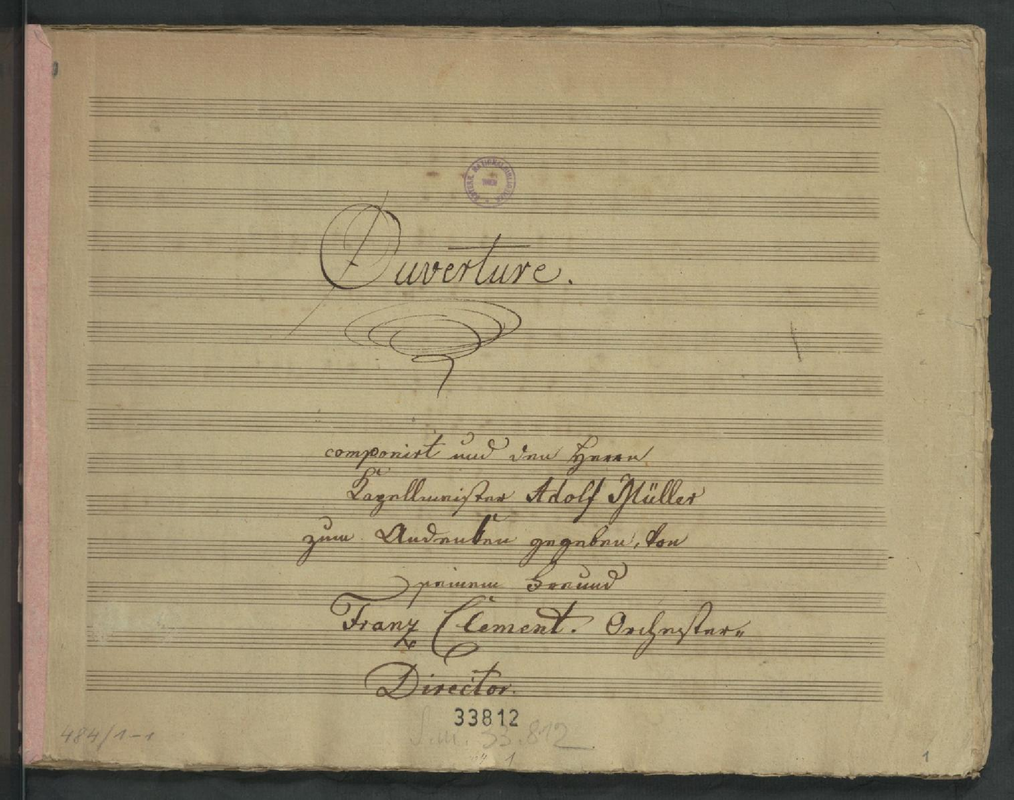 Ouverture.
componirt und den Herrn
Kapellmeister Adolf Müller
zum Andenken gegeben, von
seinem Freund
Franz Clement. Orchester=
Director.
33812
S.m. 33.812
484/1-1
1
1